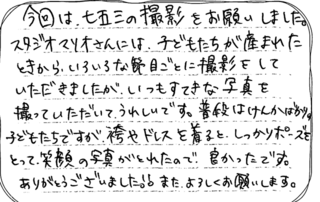 今回は、七五三の撮影をお願いしました。
スタジオマリオさんには、子どもたちが産まれた
ときから、いろいろな節目ごとに撮影をして
いただきましたが、いつもすてきな写真を
撮っていただいて、うれしいです。普段はけんかばかりの
子どもたちですが、袴やドレスを着ると、しっかりポーズを
とって、笑顔の写真がとれたので、良かったです。
ありがとうございました!! また、よろしくお願いします。